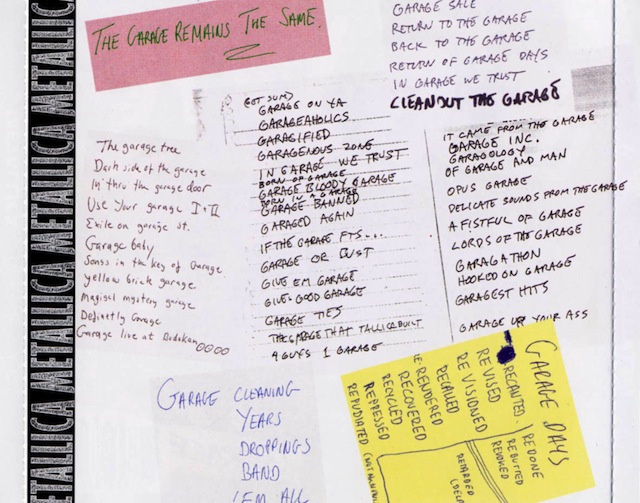 METALLICA METALLICA METALLICA METALLICA METALLICA
THE GARAGE REMAINS THE SAME.
GARAGE SALE
RETURN TO THE GARAGE
BACK TO THE GARAGE
RETURN OF GARAGE DAYS
IN GARAGE WE TRUST
CLEANOUT THE GARAGE
The garage tree
Dark side of the garage
In thru the garage door
Use Your garage I+II
Exile on garage st.
Garage baby
Songs in the key of Garage
yellow brick garage
Magical mystery garage
Definetly Garage
Garage live at Budakan
GET SUMO
GARAGE ON YA
GARAGEAHOLICS
GARAGIFIED
GARAGENOUS ZONE
IN GARAGE WE TRUST
BORN OF GARAGE
GARAGE BLOODY GARAGE
BORN IN A GARAGE
GARAGE BANNED
GARAGED AGAIN
IF THE GARAGE FTS...
GARAGE OR BUST
GIVE EM GARAGE
GIVE GOOD GARAGE
GARAGE TIES
THE GARAGE THAT TALLICA BUILT
4 GUYS 1 GARAGE
IT CAME FROM THE GARAGE
GARAGE INC.
GARAGOLOGY
OF GARAGE AND MAN
OPUS GARAGE
DELICATE SOUNDS FROM THE GARAGE
A FISTFUL OF GARAGE
LORDS OF THE GARAGE
GARAGATHON
HOOKED ON GARAGE
GARAGEST HITS
GARAGE UP YOUR ASS
GARAGE CLEANING
YEARS
DROPPINGS
BAND
'EM ALL
GARAGE DAYS
REDONE
REBUTTED
REVOKED
RECANTED
REVISED
RE VISIONED
RECALLED
RE RENDERED
RECOVERED
RECYCLED
REPRESSED
REPUDIATED
RETARDED